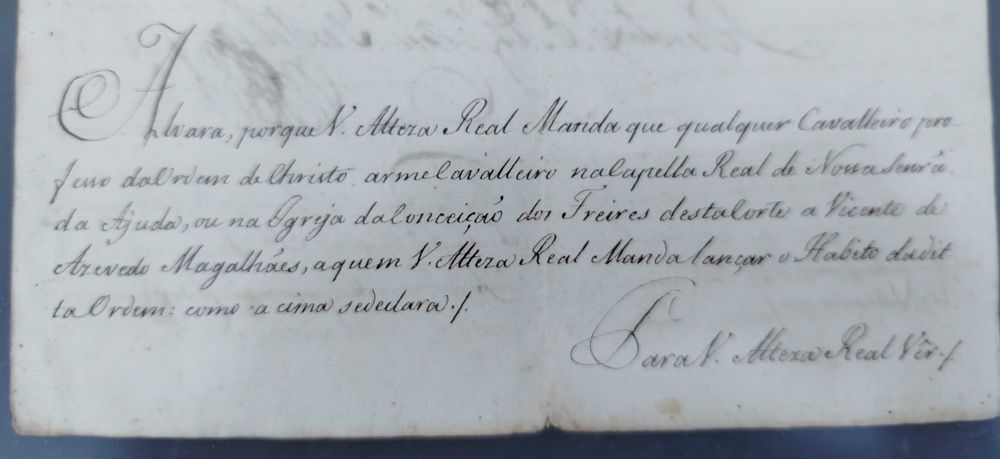 Alvara, porque V. Alteza Real Manda que qualquer Cavalleiro pro-
fesso da Ordem de Christo arme Cavalleiro na Capella Real de Nossa Senrã.
da Ajuda, ou na Igreja da Conceição dos Freires desta Corte a Vicente de
Azevedo Magalhães, a quem V. Alteza Real Manda lançar o Habito da dit
ta Ordem: como a cima se declara./.
Para V. Alteza Real Vêr./.